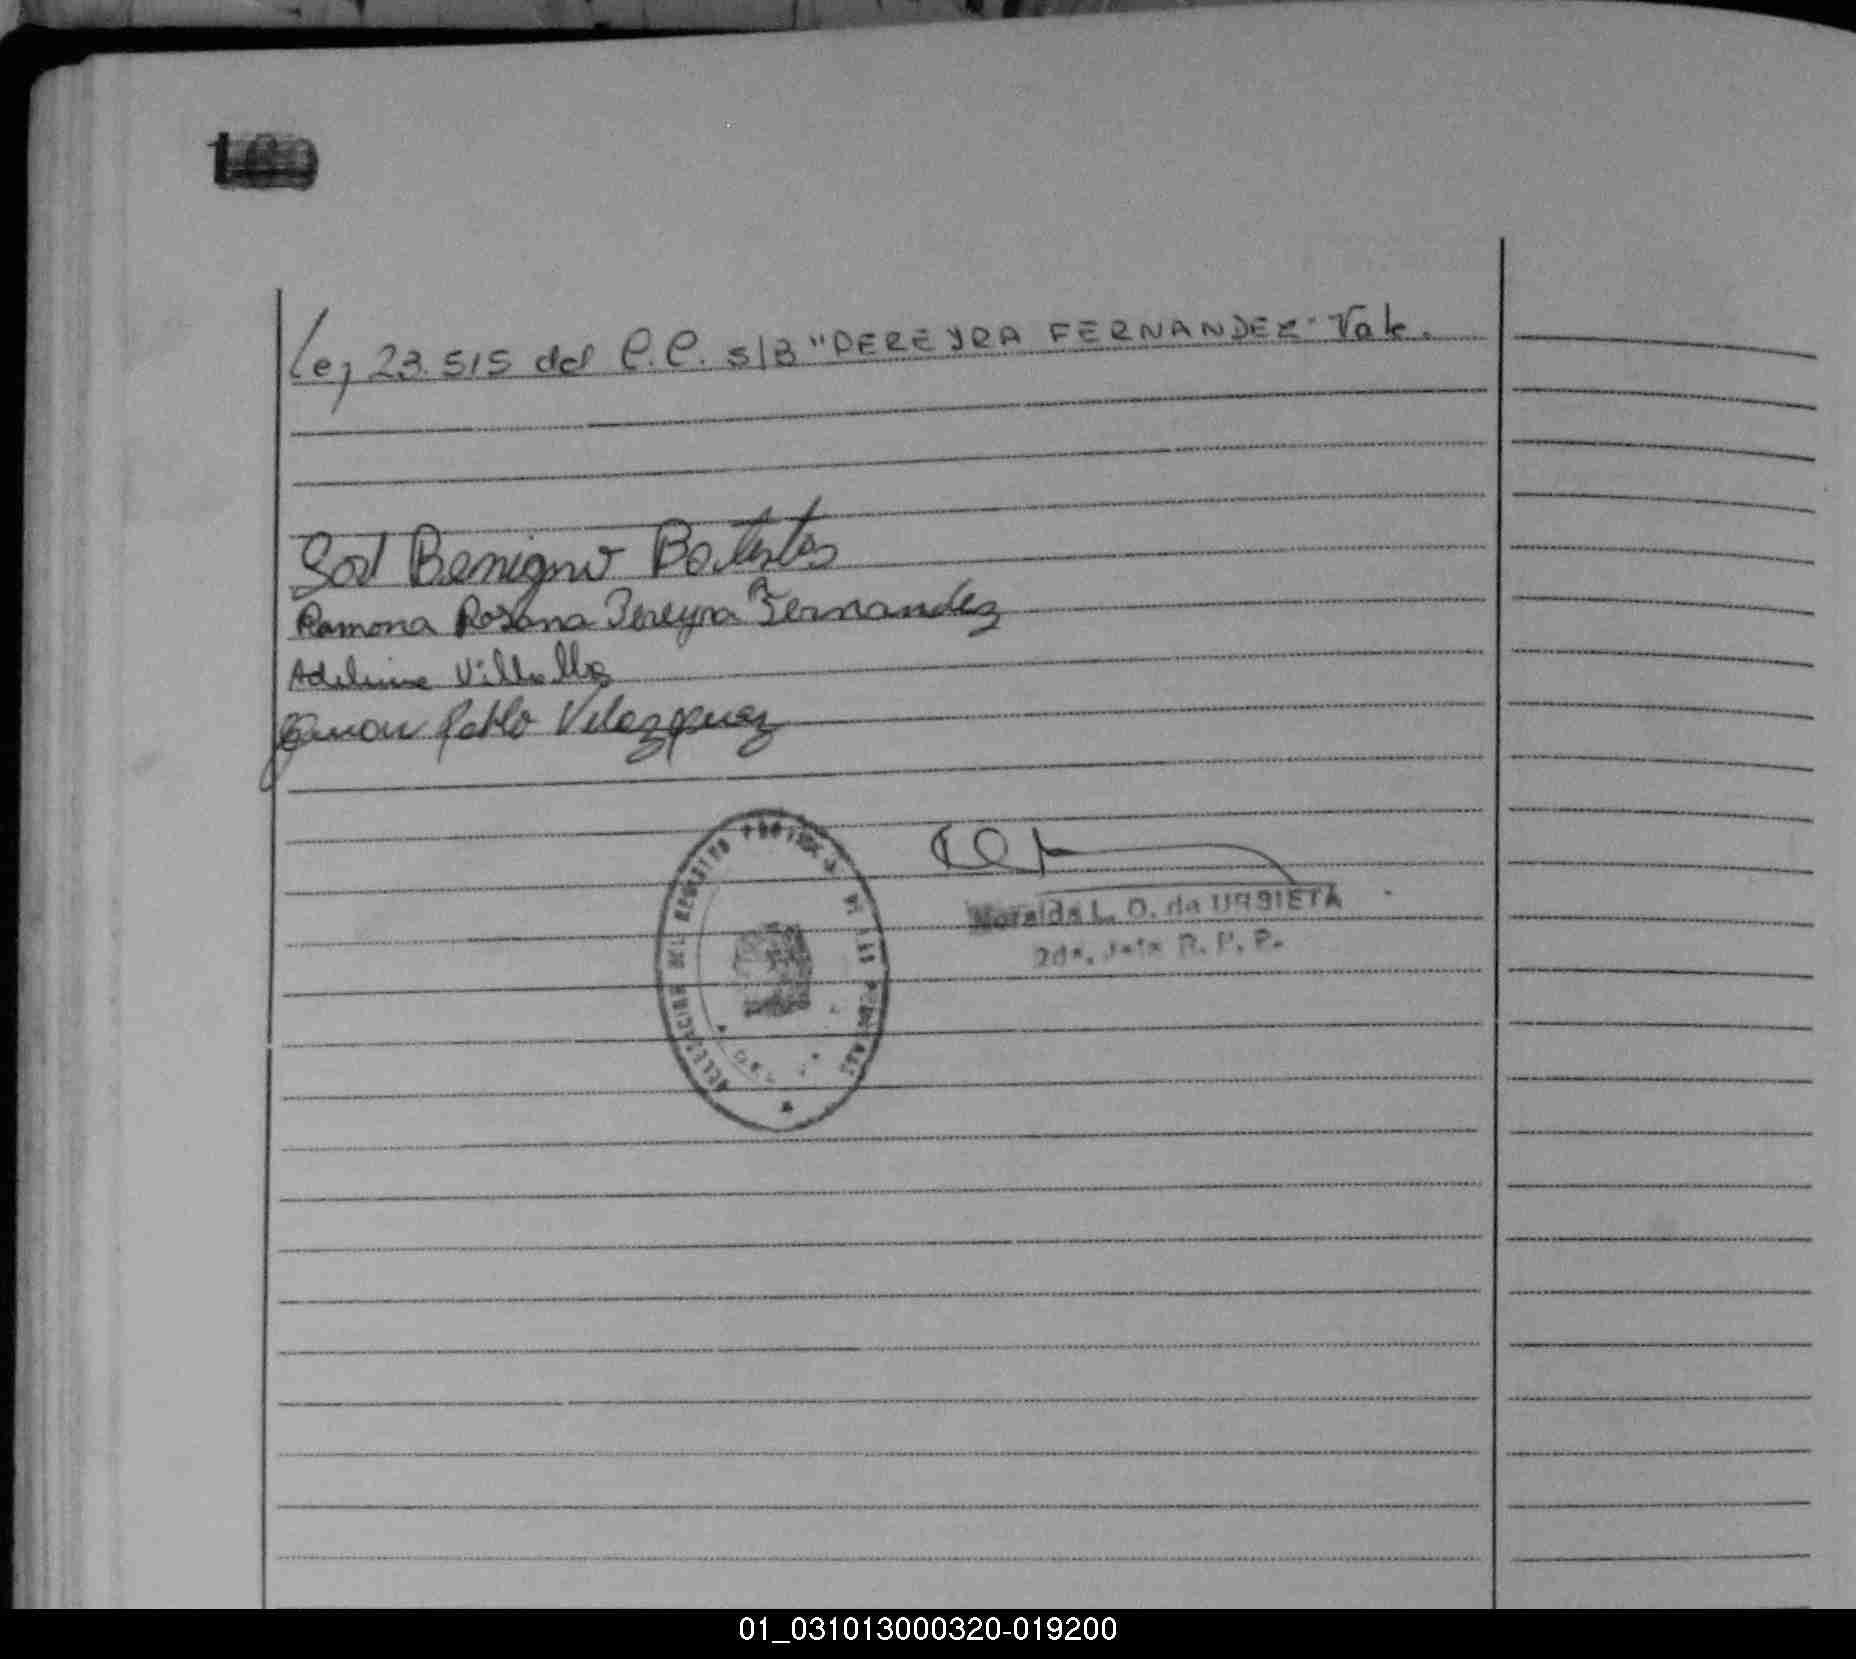 Ley 23.515 del C.C. s/B "PEREYRA FERNANDEZ" Vale.
Benigno
Ramona Rosana Pereyra Fernandez
Villalba
Juan Pablo Velazquez
DELEGACION DEL REGISTRO PROVINCIAL DE LAS PERSONAS
L. O. de URBIETA
2da. Jefa R. P. P.
01_031013000320-019200